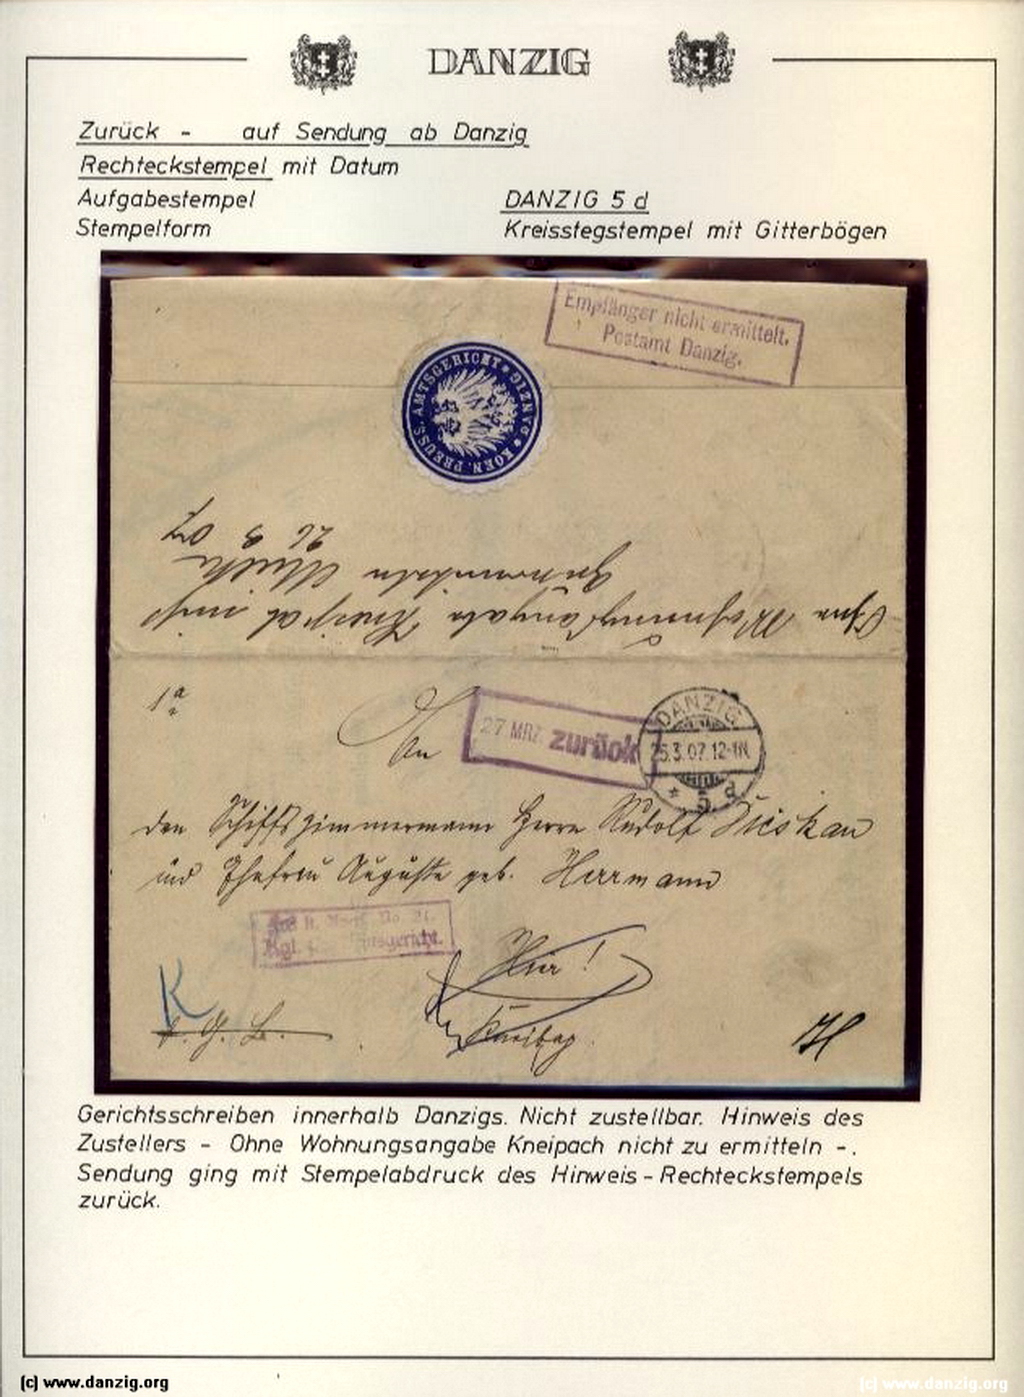 DANZIG
Zurück - auf Sendung ab Danzig
Rechteckstempel mit Datum
Aufgabestempel DANZIG 5 d
Stempelform Kreisstegstempel mit Gitterbögen
Empfänger nicht ermittelt.
Postamt Danzig.
KOEN. PREUSS. AMTSGERICHT * DANZIG *
Ohne Wohnungsangabe Kneipab nicht
zu ermitteln
26 3 07
1a
An
27 MRZ. zurück
DANZIG
25.3.07.12-1N.
* 5 d
den Schiffszimmermann Herrn Rudolf
und Ehefrau Auguste geb. Herrmann
Kgl.
Hier!
K
Kneibab
H
Gerichtsschreiben innerhalb Danzigs. Nicht zustellbar. Hinweis des
Zustellers - Ohne Wohnungsangabe Kneipach nicht zu ermitteln -.
Sendung ging mit Stempelabdruck des Hinweis-Rechteckstempels
zurück.
(c) www.danzig.org
(c) www.danzig.org